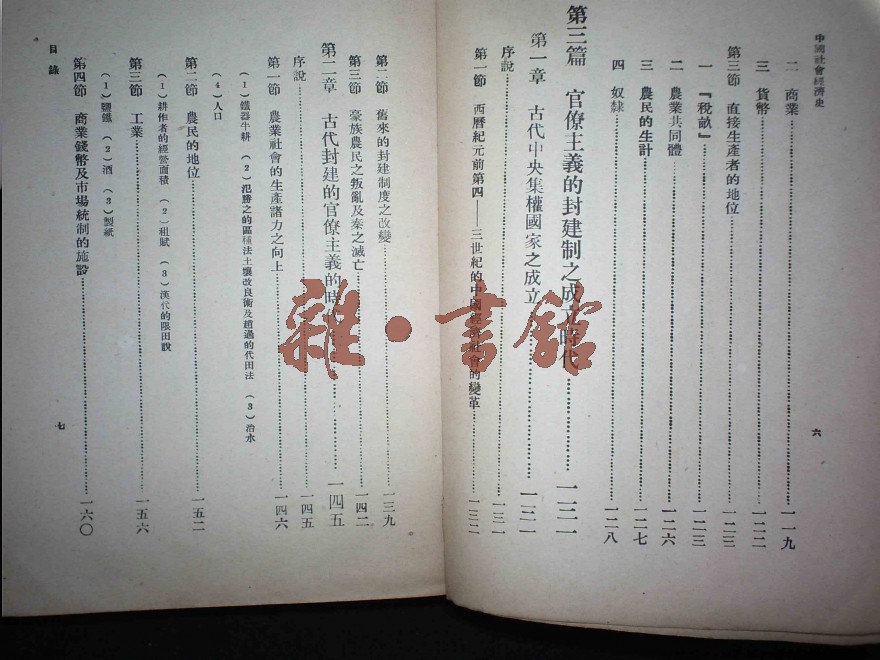 中國社會經濟史
六
二 商業 一一九
三 貨幣 一二二
第三節 直接生產者的地位 一二三
一 『稅畝』 一二三
二 農業共同體 一二六
三 農民的生計 一二七
四 奴隸 一二八
第三篇 官僚主義的封建制之成立時代 一三一
第一章 古代中央集權國家之成立 一三一
序說 一三一
第一節 西曆紀元前第四——三世紀的中國經濟社會的變革 一三二
第二節 舊來的封建制度之改變 一三九
第三節 豪族農民之叛亂及秦之滅亡 一四二
第二章 古代封建的官僚主義的時 一四五
序說 一四五
第一節 農業社會的生產諸力之向上 一四六
(1)鐵器牛耕 (2)氾勝之的區種法土壤改良術及趙過的代田法 (3)治水
(4)人口
第二節 農民的地位 一五二
(1)耕作者的經營面積 (2)租賦 (3)漢代的限田說
第三節 工業 一五六
(1)鹽鐵 (2)酒 (3)製紙
第四節 商業錢幣及市場統制的施設 一六〇
目錄
七
雜·書館